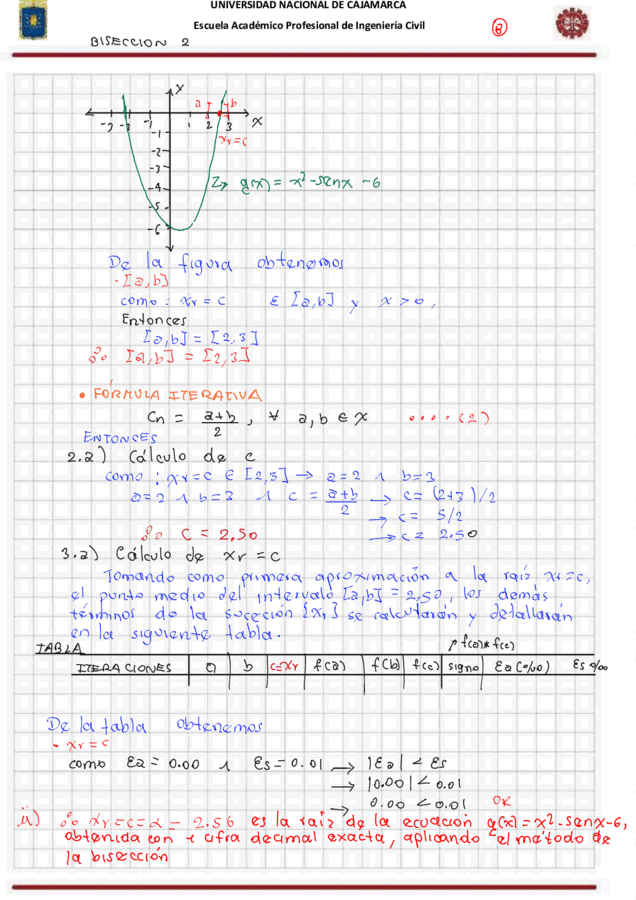 UNIVERSIDAD NACIONAL DE CAJAMARCA
Escuela Académico Profesional de Ingeniería Civil
8
BISECCION 2
x
a b
-3 -2 -1 1 2 3 x
xr=c
-1
-2
-3
-4
-5
-6
g(x) = x² - senx - 6
De la figura obtenemos
- [a,b]
como : xr = c ∈ [a,b] y x > 0,
Entonces
[a,b] = [2,3]
∴ [a,b] = [2,3]
• FÓRMULA ITERATIVA
Cn = a+b/2 , ∀ a,b ∈ x .... (2)
ENTONCES
2.2) Cálculo de c
como : xr=c ∈ [2,3] → a=2 ∧ b=3
a=2 ∧ b=3 ∧ c = a+b/2 → c= (2+3)/2
→ c= 5/2
∴ C = 2,50 → c= 2.50
3.2) Cálculo de xr = c
Tomando como primera aproximación a la raíz xr=c,
el punto medio del intervalo [a,b] = 2,50, los demás
términos de la suceción {xi} se calcularán y detallarán
en la siguiente tabla.
TABLA f(a)*f(c)
ITERACIONES a b c=xr f(a) f(b) f(c) signo Ea(%) Es %
De la tabla obtenemos
- xr = c
como Ea = 0.00 ∧ Es = 0.01 → |Ea| < Es
→ |0.00| < 0.01
→ 0.00 < 0.01 OK
ii) ∴ xr=c=α= 2.56 es la raíz de la ecuación g(x) = x²-senx-6,
obtenida con cifra decimal exacta, aplicando el método de
la bisección